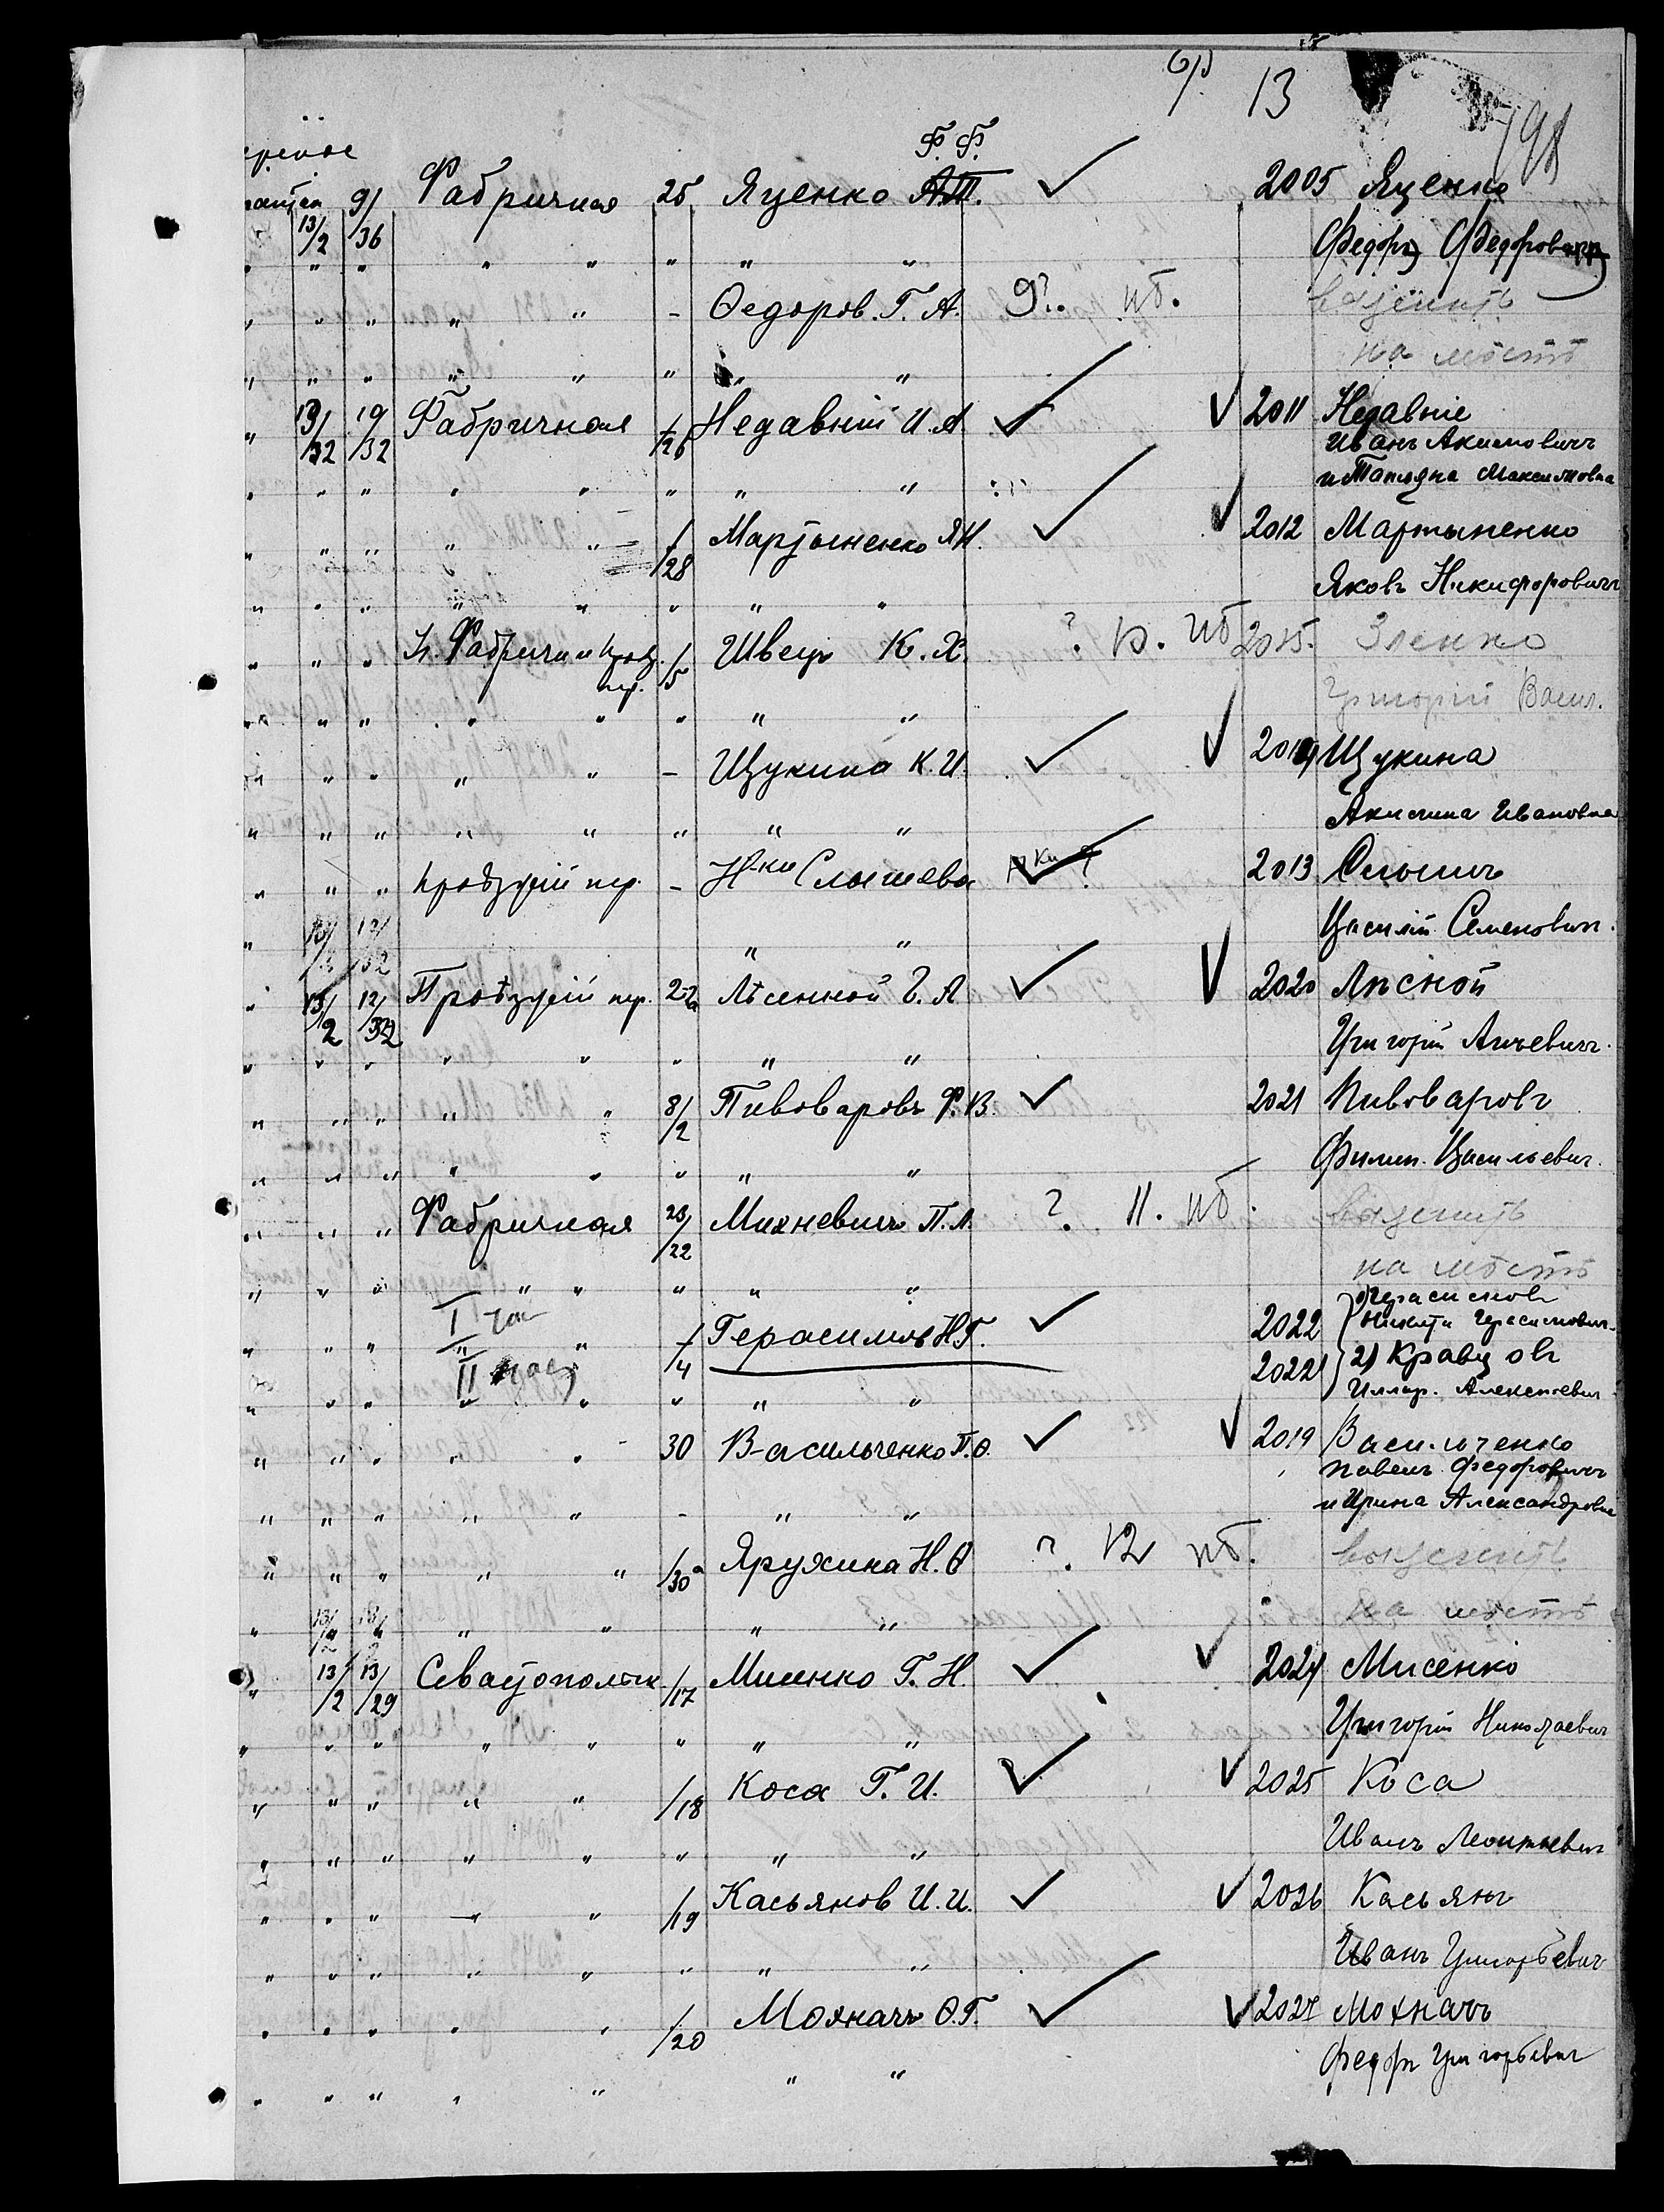 13
98
Ф. Ф.
9/ Фабричная 25 Яценко А.П. 2005 Яценко
13/2 /36 Федоръ Федоровичъ
" " " " " " " "
" " " " " - Федоров. Г. А. 9?. нб. выяснить
" " " " " " " " на мѣстѣ
" 13/32 19/32 Фабричная /26 Недавній И. А 2011 Недавніе
Иванъ Акимовичъ
" " " " " " " " и Татьяна Максимовна
" " " " " /28 Мартыненко Я Н. 2012 Мартыненко
" " " " " " " " Яковъ Никифоровичъ
" " " Фабричн и пер. /5 Швецъ К. Х. ? 10. нб 2015. Зленко
" " " " " " " " Григорій Васил.
" " " " " - Щукина К. И. 2014 Щукина
" " " " " " " " Акилина Ивановна
" " " Проѣздній пер. - Н-ки Слышева 2013 Слышъ
" 13/ 12/32 " " Василій Семеновичъ.
" 13/2 12/32 Проѣздній пер. Лѣсенной Г. А 2020 Лѣсной
" " " " " " " " Григорій
" " " " " 8/2 Пивоваровъ Ф. В. 2021 Пивоваровъ
" " " " " " " " Филип. Васильевич.
" " " Фабричная 23/22 Михневичъ П. Л. ? 11. нб. выяснить
" " " " " " " " на мѣстѣ
" " " I час " /4 Герасимов Н Г. 2022 1) Герасимовъ
Никита Герасимович.
II часть 2022 2) Кравцовъ
" " " " " " " " Иллар. Алексѣевич.
" " " " " 30 Васильченко П. Ѳ. 2019 Васильченко
Павелъ Федоровичъ
" " " " " - " " и Ирина Александровна
" " " " " /30а Яружина Н. Ѳ ?. 12 нб. выяснить
" 13/ 13/ " " " " на мѣстѣ
" 13/2 13/29 Севастопольск /17 Мисенко Г. Н. 2024 Мисенко
" " " " " " " " Григорій Николаевич
" " " " " /18 Коса Г. И. 2025 Коса
" " " " " " " " Иванъ Леонтьевич
" " " " " /19 Касьянов И. И. 2026 Касьянъ
" " " " " " " " Иванъ Григорьевич
" " " " " /20 Мохначъ Ѳ. Г. 2027 Мохначъ
" " " " " " " Федоръ Григорьевич